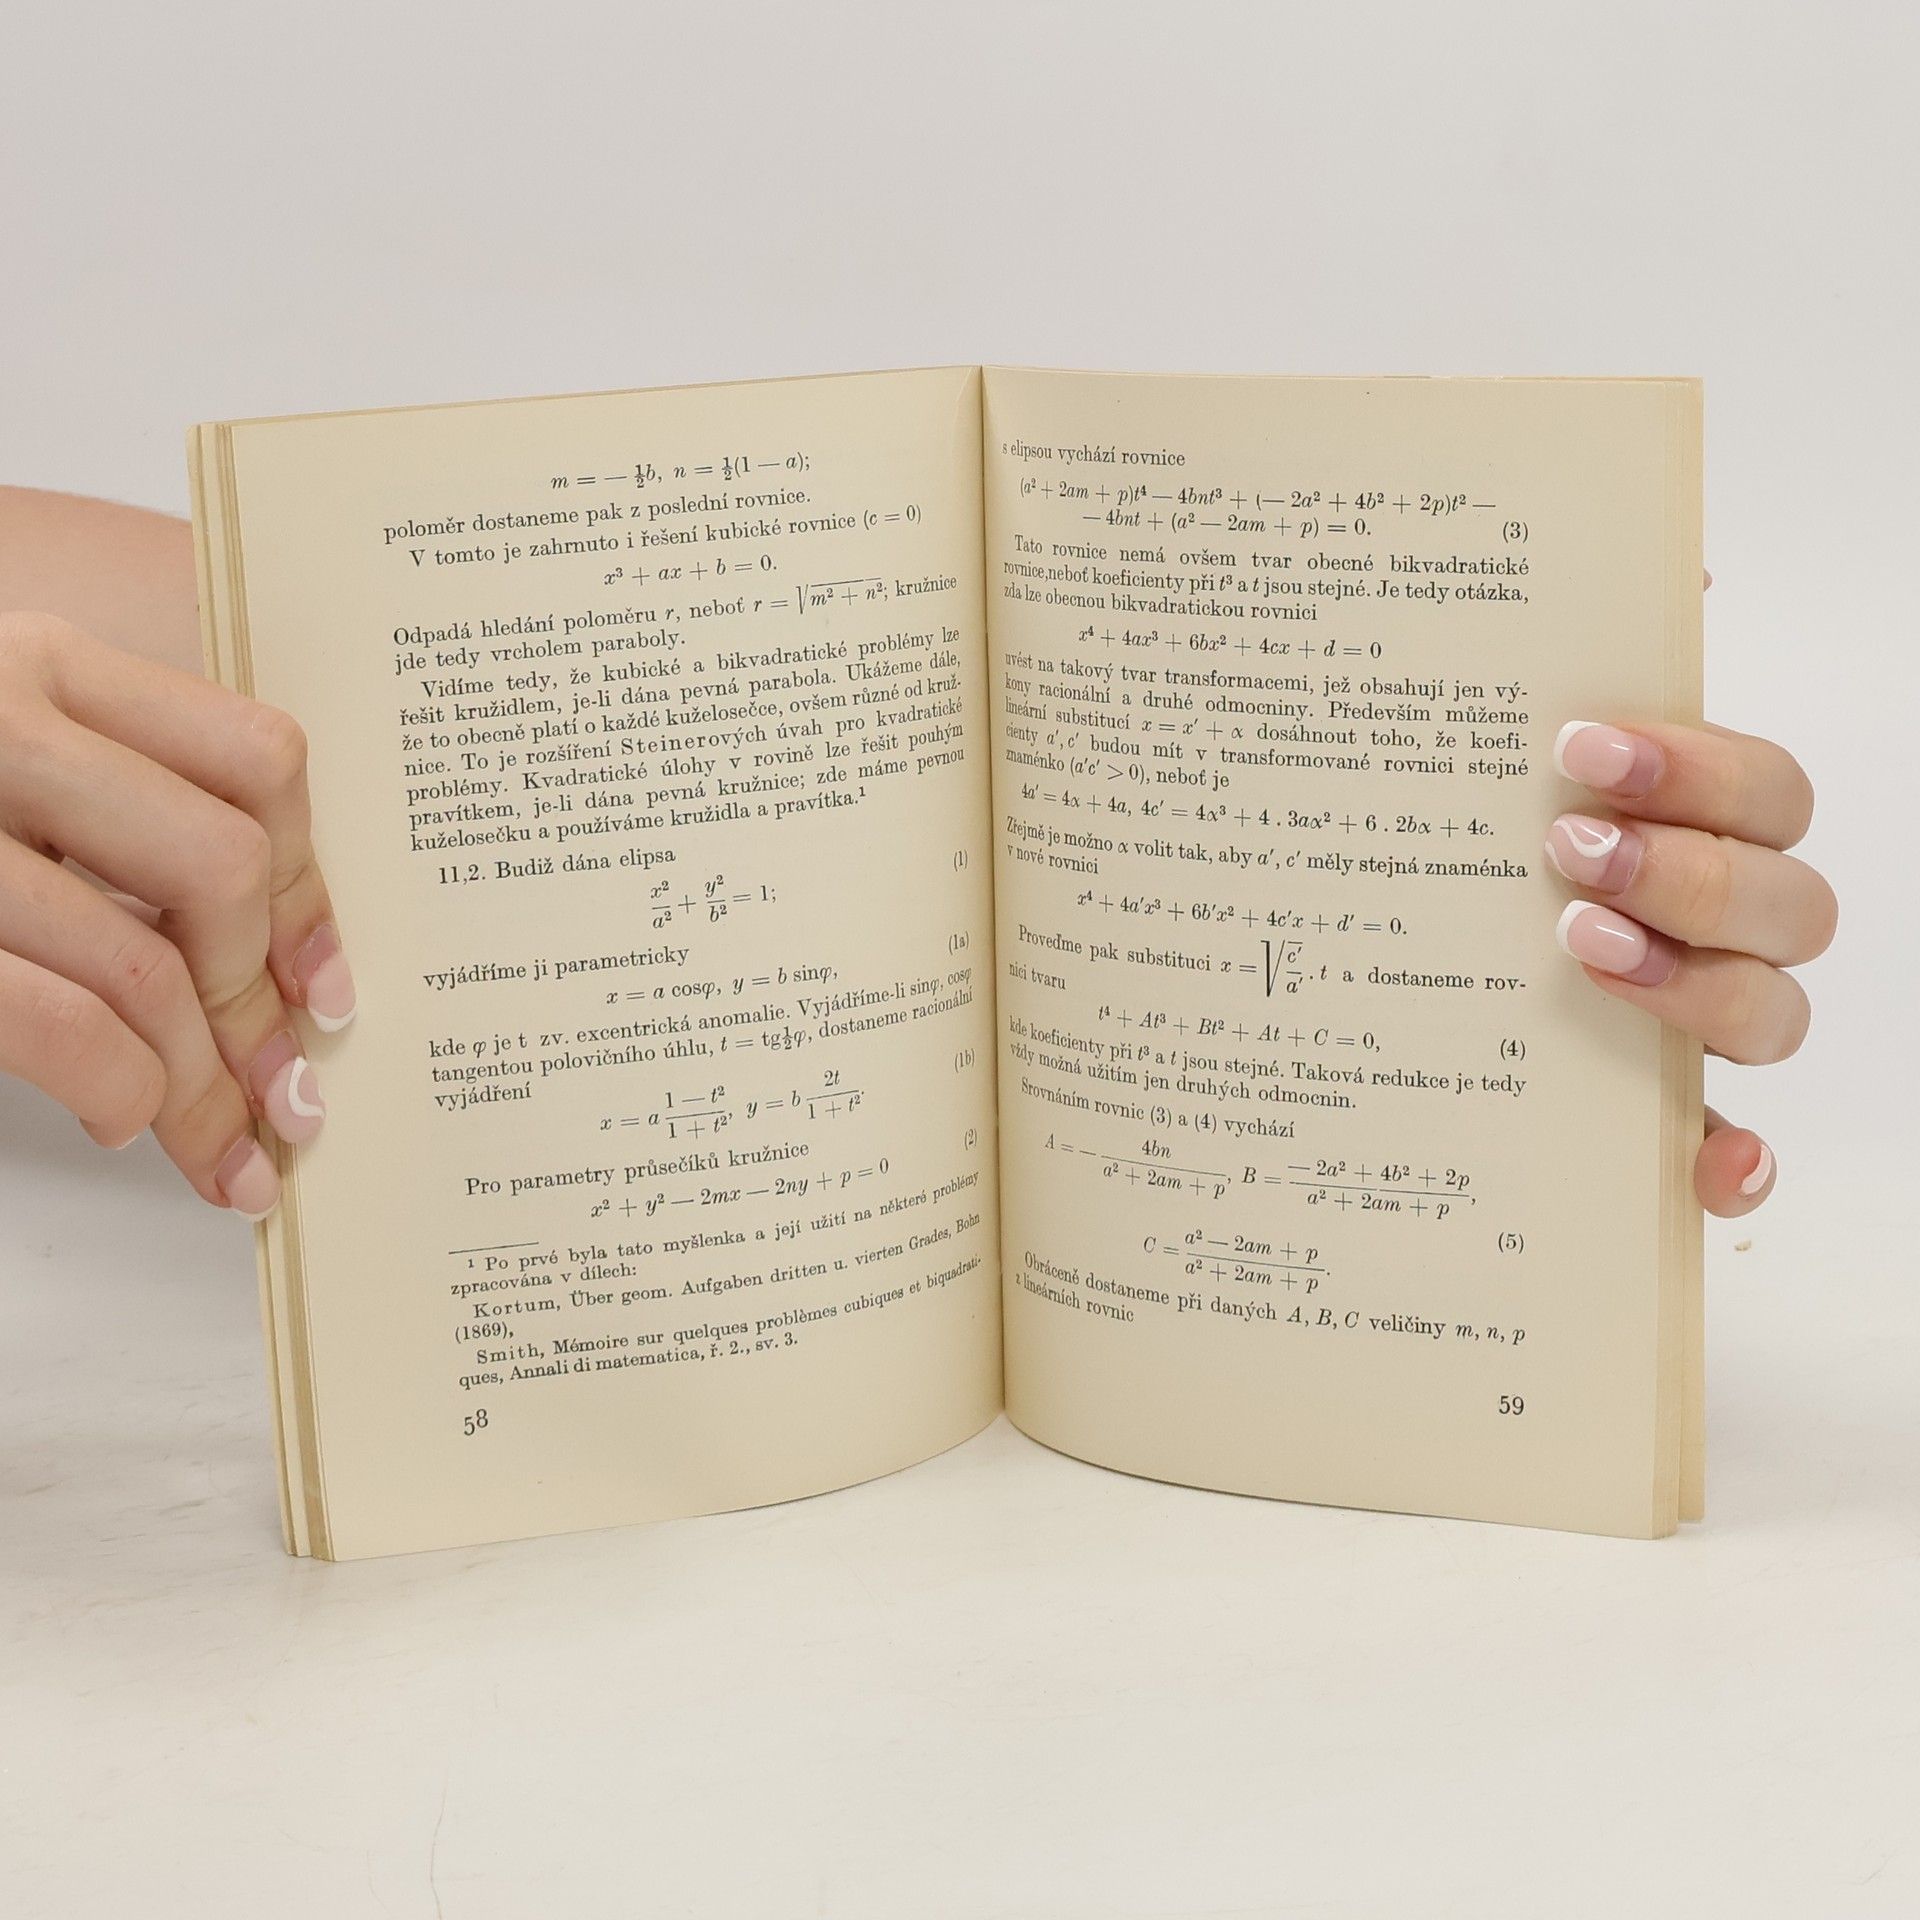 m = — ½b, n = ½(1 — a);
poloměr dostaneme pak z poslední rovnice.
V tomto je zahrnuto i řešení kubické rovnice (c = 0)
x³ + ax + b = 0.
Odpadá hledání poloměru r, neboť r = √(m² + n²); kružnice
jde tedy vrcholem paraboly.
Vidíme tedy, že kubické a bikvadratické problémy lze
řešit kružidlem, je-li dána pevná parabola. Ukážeme dále,
že to obecně platí o každé kuželosečce, ovšem různé od kruž-
nice. To je rozšíření Steinerových úvah pro kvadratické
problémy. Kvadratické úlohy v rovině lze řešit pouhým
pravítkem, je-li dána pevná kružnice; zde máme pevnou
kuželosečku a používáme kružidla a pravítka.¹
11,2. Budiž dána elipsa
x²/a² + y²/b² = 1; (1)
vyjádříme ji parametricky
x = a cosφ, y = b sinφ, (1a)
kde φ je t zv. excentrická anomalie. Vyjádříme-li sinφ, cosφ
tangentou polovičního úhlu, t = tg½φ, dostaneme racionální
vyjádření
x = a (1 — t²)/(1 + t²), y = b 2t/(1 + t²). (1b)
Pro parametry průsečíků kružnice
x² + y² — 2mx — 2ny + p = 0 (2)
¹ Po prvé byla tato myšlenka a její užití na některé problémy
zpracována v dílech:
Kortum, Über geom. Aufgaben dritten u. vierten Grades, Bohn
(1869),
Smith, Mémoire sur quelques problèmes cubiques et biquadrati-
ques, Annali di matematica, ř. 2., sv. 3.
58
s elipsou vychází rovnice
(a² + 2am + p)t⁴ — 4bnt³ + (— 2a² + 4b² + 2p)t² —
— 4bnt + (a² — 2am + p) = 0. (3)
Tato rovnice nemá ovšem tvar obecné bikvadratické
rovnice,neboť koeficienty při t³ a t jsou stejné. Je tedy otázka,
zda lze obecnou bikvadratickou rovnici
x⁴ + 4ax³ + 6bx² + 4cx + d = 0
uvést na takový tvar transformacemi, jež obsahují jen vý-
kony racionální a druhé odmocniny. Především můžeme
lineární substitucí x = x′ + α dosáhnout toho, že koefi-
cienty a′, c′ budou mít v transformované rovnici stejné
znaménko (a′c′ > 0), neboť je
4a′ = 4α + 4a, 4c′ = 4α³ + 4 . 3aα² + 6 . 2bα + 4c.
Zřejmě je možno α volit tak, aby a′, c′ měly stejná znaménka
v nové rovnici
x⁴ + 4a′x³ + 6b′x² + 4c′x + d′ = 0.
Proveďme pak substituci x = √(c′/a′) . t a dostaneme rov-
nici tvaru
t⁴ + At³ + Bt² + At + C = 0, (4)
kde koeficienty při t³ a t jsou stejné. Taková redukce je tedy
vždy možná užitím jen druhých odmocnin.
Srovnáním rovnic (3) a (4) vychází
A = — 4bn/(a² + 2am + p), B = (— 2a² + 4b² + 2p)/(a² + 2am + p),
C = (a² — 2am + p)/(a² + 2am + p). (5)
Obráceně dostaneme při daných A, B, C veličiny m, n, p
z lineárních rovnic
59